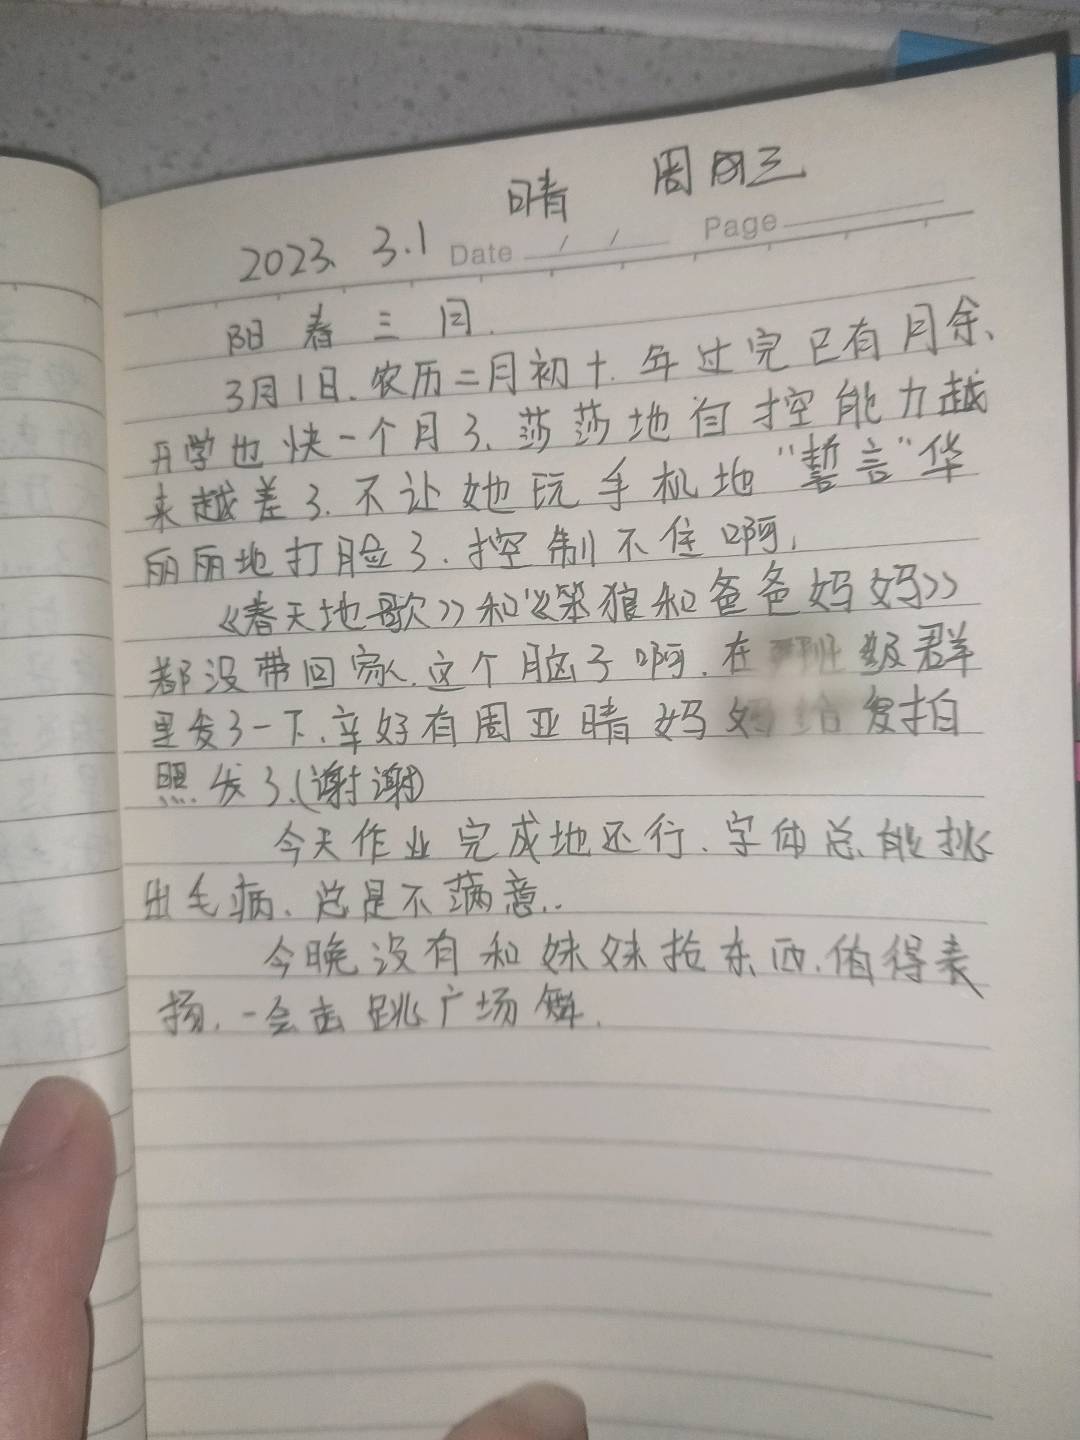 晴 周三
2023. 3.1 Date / / Page
阳春三月.
3月1日.农历二月初十.年过完已有月余、
开学也快一个月了、莎莎地自控能力越
来越差了.不让她玩手机地“誓言”华
丽丽地打脸了.控制不住啊,
《春天地歌》和《笨狼和爸爸妈妈》
都没带回家.这个脑子啊.在班级群
里发了一下、幸好有周亚晴妈 发拍
照发了.(谢谢)
今天作业完成地还行.字体总能挑
出毛病、总是不满意..
今晚没有和妹妹抢东西.值得表
扬.一会去跳广场舞.